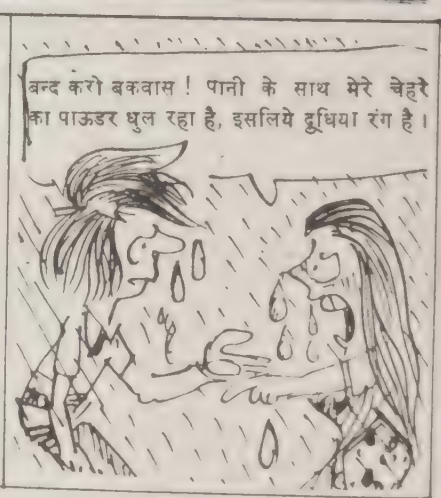 बन्द करो बकवास ! पानी के साथ मेरे चेहरे
का पाऊडर धुल रहा है, इसलिये दूधिया रंग है ।